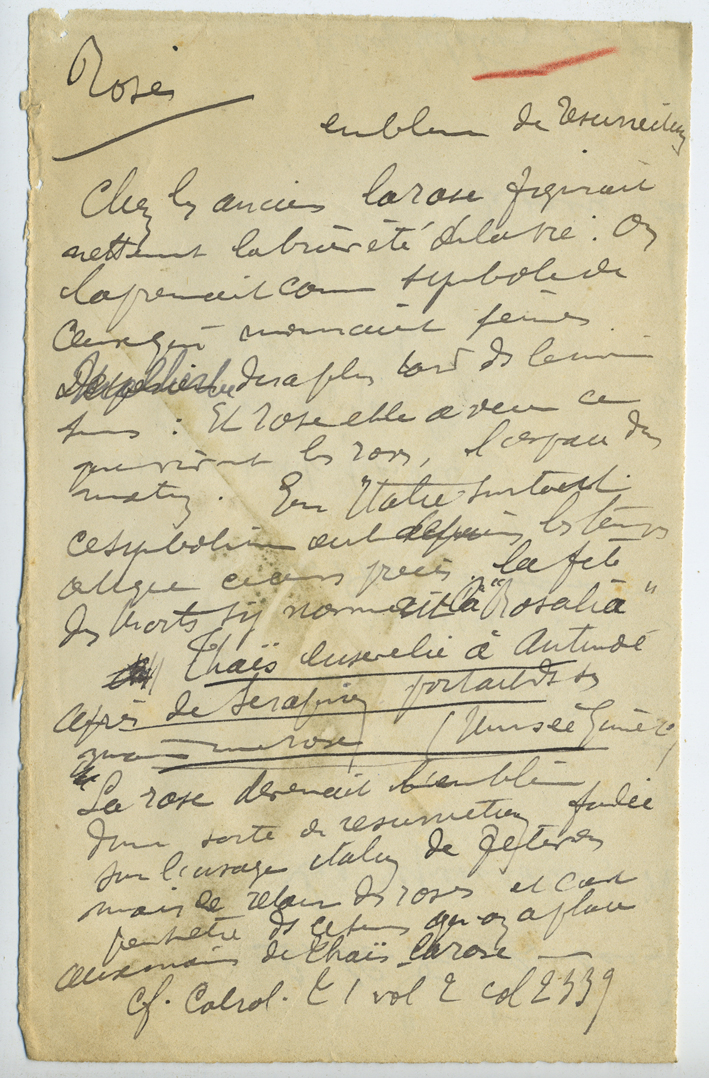 Rose
emblem de resurrection
Chez les anciens la rose figurait
nettement la brièveté de la vie. On
la prenait comme symbole de
ceux qui mouraient jeunes
plus tard de le même
sens : Et rose elle a vecu ce
que vivent les roses, l'espace d'un
matin. En Italie surtout
ce symbolisme les temps
antique la fete
des Morts s'y nommait la "Rosalia"
Thaïs ensevelie à Antinoë
après de Serapion portait dans ses
mains une rose (Musée Guimet)
La rose devenait l'emblème
d'une sorte de resurrection fondée
sur l'usage italien de fêter des
morts le retour des roses et c'est
peut etre de ce sens qu'on a placé
aux mains de Thaïs la rose —
cf. Cabrol. t 1 vol 2 col 2339